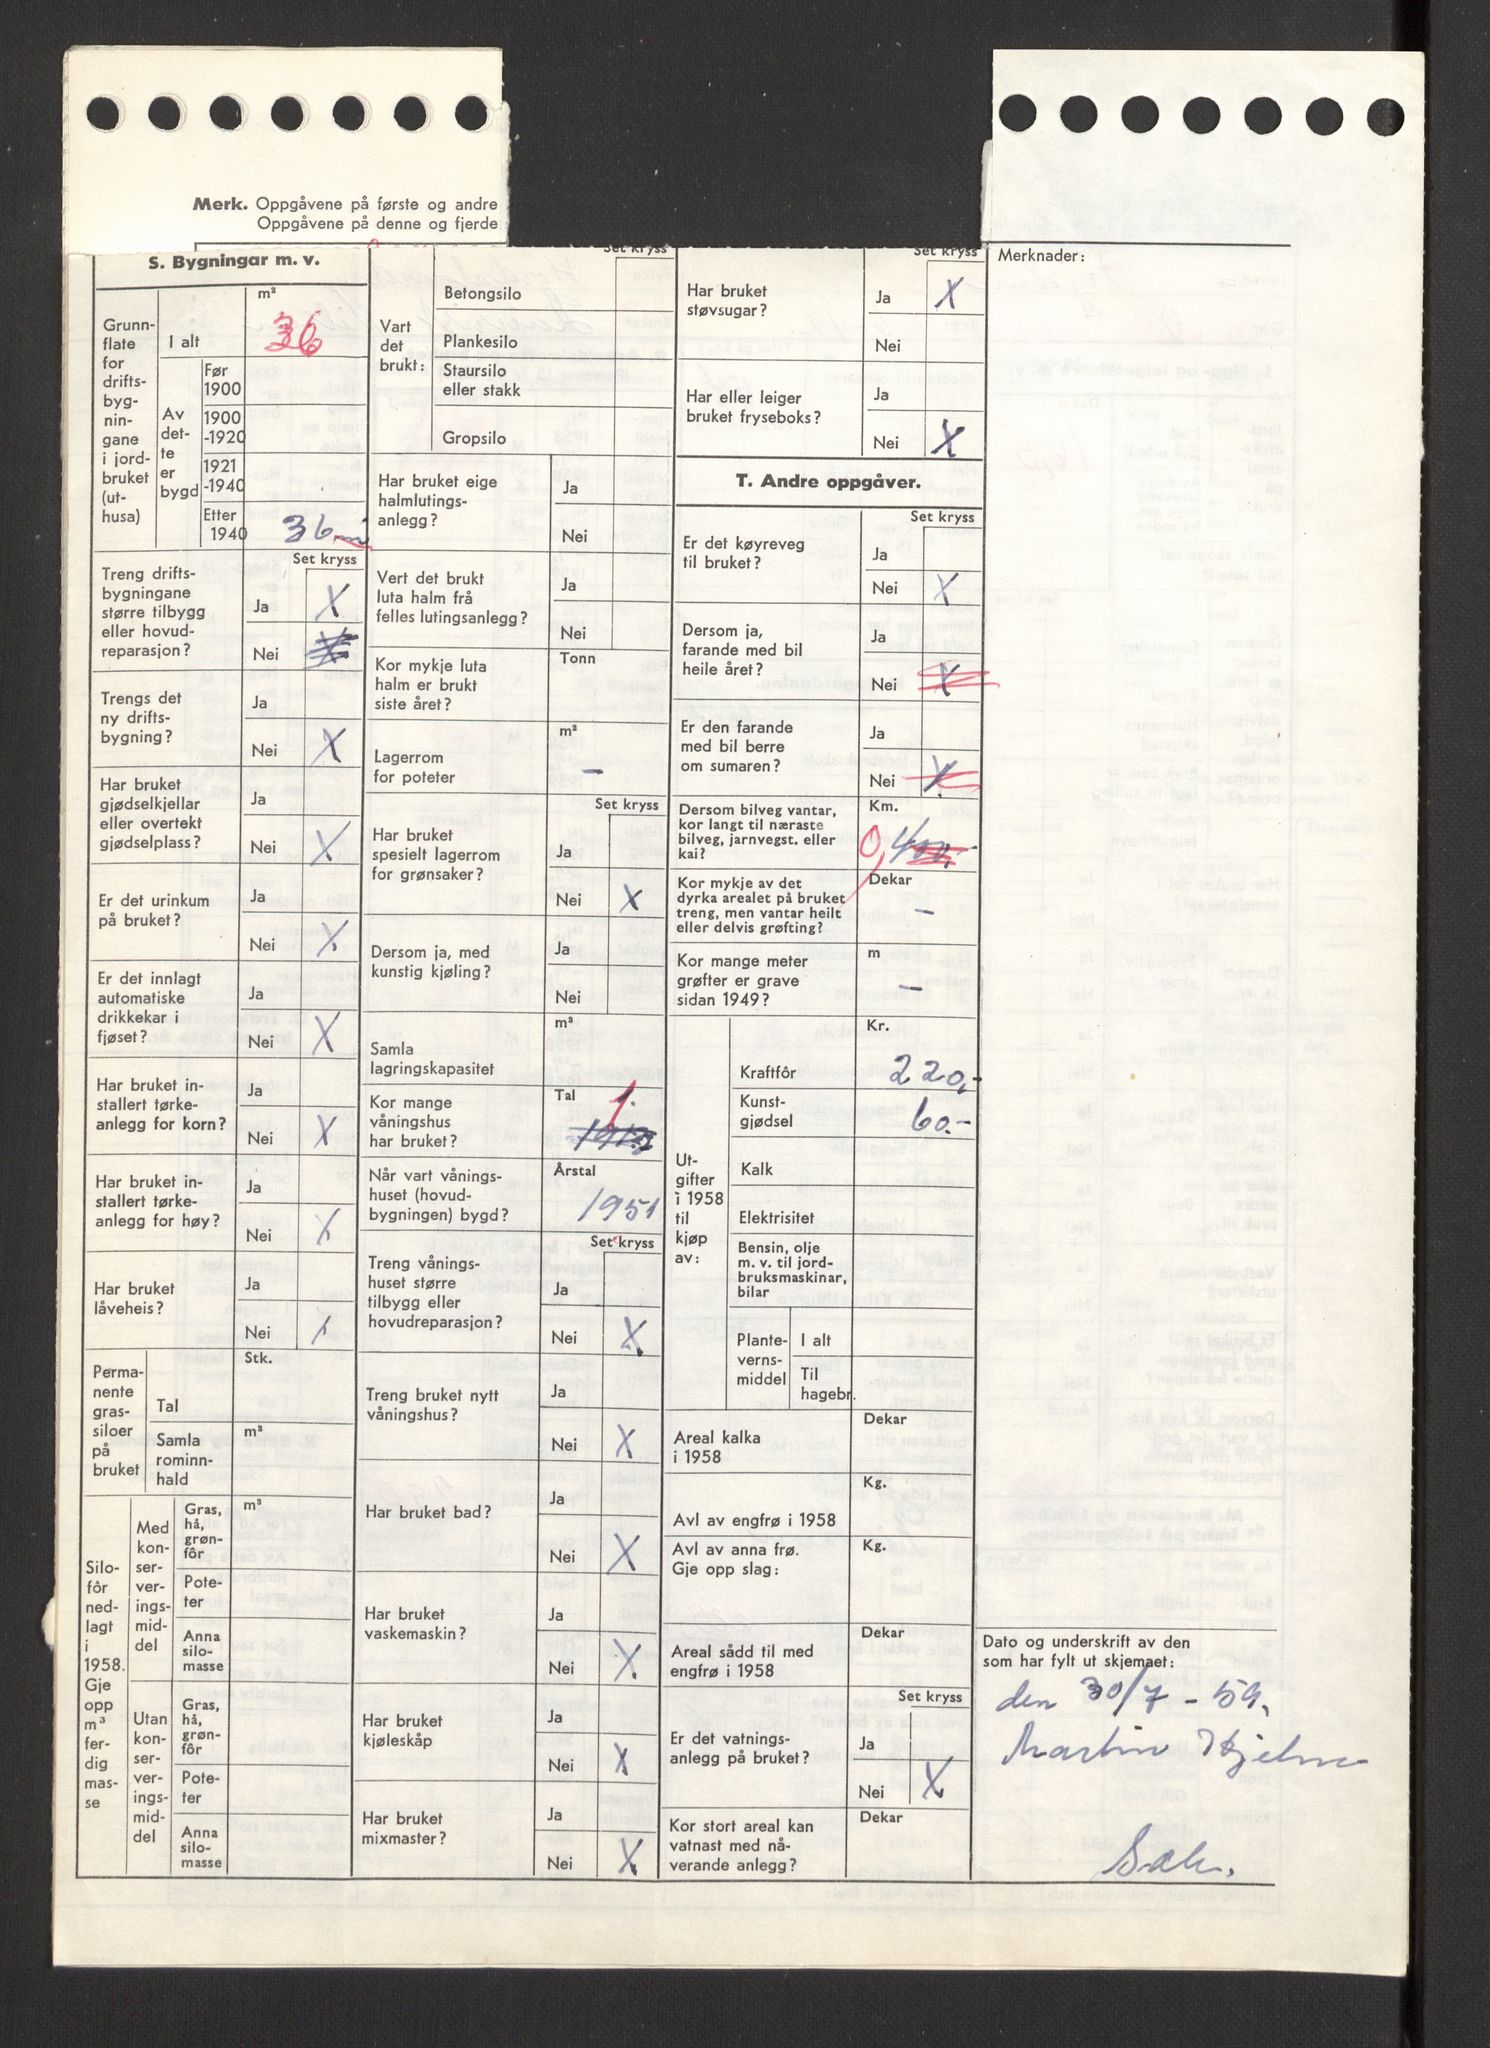 Merk. Oppgåvene på første og andre
Oppgåvene på denne og fjerde
S. Bygningar m. v.
Grunn-
flate
for
drifts-
byg-
nin-
gane
i jord-
bruket
(ut-
husa)
I alt
m²
36
Av
det-
te
er
bygd
Før
1900
1900
-1920
1921
-1940
Etter
1940
36
Set kryss
Treng drifts-
bygningane
større tilbygg
eller hovud-
reparasjon?
Ja X
Nei X
Trengs det
ny drifts-
bygning?
Ja
Nei X
Har bruket
gjødselkjellar
eller overtekt
gjødselplass?
Ja
Nei X
Er det urinkum
på bruket?
Ja
Nei X
Er det innlagt
automatiske
drikkekar i
fjøset?
Ja
Nei X
Har bruket in-
stallert tørke-
anlegg for korn?
Ja
Nei X
Har bruket in-
stallert tørke-
anlegg for høy?
Ja
Nei X
Har bruket
låveheis?
Ja
Nei X
Perma-
nente
gras-
siloer
på
bruket
Stk.
Tal
Samla
rominn-
hald
m³
Silo-
fôr
ned-
lagt
i
1958.
Gje
opp
m³
fer-
dig
mas-
se
Med
kon-
ser-
ver-
ings-
mid-
del
Gras,
hå,
grøn-
fôr
m³
Pote-
ter
Anna
silo-
masse
Utan
kon-
ser-
ver-
ings-
mid-
del
Gras,
hå,
grøn-
fôr
Pote-
ter
Anna
silo-
masse
Set kryss
Vart
det
brukt:
Betongsilo
Plankesilo
Staursilo
eller stakk
Gropsilo
Har bruket eige
halmlutings-
anlegg?
Ja
Nei
Vert det brukt
luta halm frå
felles lutingsanlegg?
Ja
Nei
Kor mykje luta
halm er brukt
siste året?
Tonn
Lagerrom
for poteter
m²
–
Set kryss
Har bruket
spesielt lagerrom
for grønsaker?
Ja
Nei X
Dersom ja, med
kunstig kjøling?
Ja
Nei
Samla
lagringskapasitet
m³
Kor mange
våningshus
har bruket?
Tal
1.
Når vart vånings-
huset (hovud-
bygningen) bygd?
Årstal
1951
Set kryss
Treng vånings-
huset større
tilbygg eller
hovudreparasjon?
Ja
Nei X
Treng bruket nytt
våningshus?
Ja
Nei X
Har bruket bad?
Ja
Nei X
Har bruket
vaskemaskin?
Ja
Nei X
Har bruket
kjøleskåp
Ja
Nei X
Har bruket
mixmaster?
Ja
Nei X
Set kryss
Har bruket
støvsugar?
Ja X
Nei
Har eller leiger
bruket fryseboks?
Ja
Nei X
T. Andre oppgåver.
Set kryss
Er det køyreveg
til bruket?
Ja
Nei X
Dersom ja,
farande med bil
heile året?
Ja
Nei X
Er den farande
med bil berre
om sumaren?
Ja
Nei X
Dersom bilveg vantar,
kor langt til næraste
bilveg, jarnvegst. eller
kai?
Km.
0,4
Kor mykje av det
dyrka arealet på bruket
treng, men vantar heilt
eller delvis grøfting?
Dekar
–
Kor mange meter
grøfter er grave
sidan 1949?
m
–
Ut-
gifter
i 1958
til
kjøp
av:
Kr.
Kraftfôr
220,-
Kunst-
gjødsel
60.-
Kalk
Elektrisitet
Bensin, olje
m. v. til jord-
bruksmaskinar,
bilar
Plante-
verns-
middel
I alt
Til
hagebr.
Areal kalka
i 1958
Dekar
Avl av engfrø i 1958
Kg.
Avl av anna frø.
Gje opp slag:
Kg.
Areal sådd til med
engfrø i 1958
Dekar
Set kryss
Er det vatnings-
anlegg på bruket?
Ja
Nei X
Kor stort areal kan
vatnast med nå-
verande anlegg?
Dekar
Merknader:
Dato og underskrift av den
som har fylt ut skjemaet:
den 30/7 - 59.
Martin Hjelme